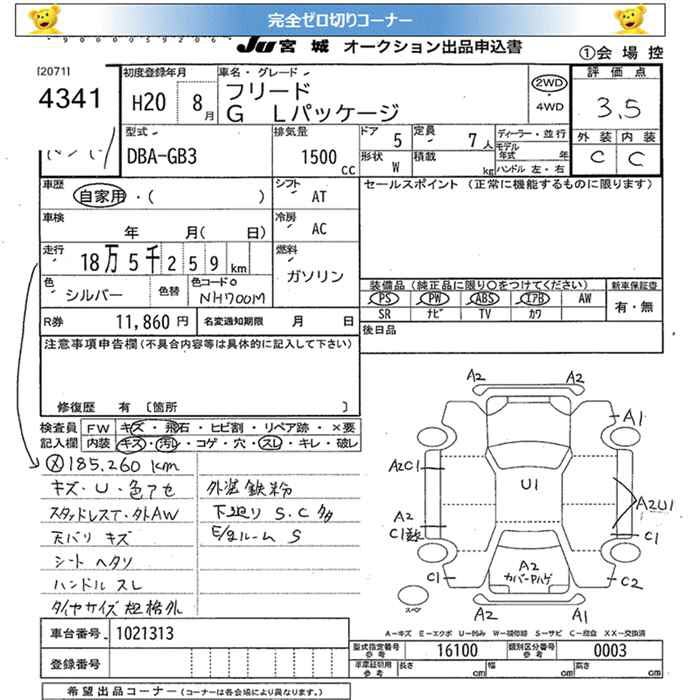 完全ゼロ切りコーナー
JU 宮城 オークション出品申込書 ①会場控
[2071]
4341
初度登録年月 H20 8月
車名・グレード
フリード
G Lパッケージ
2WD・4WD
評価点 3.5
外装 内装
C C
型式 DBA-GB3
排気量 1500 cc
ドア 5
定員 7 人
形状 W
積載 kg
ディーラー・並行
モデル年式 年
ハンドル 左・右
車歴 自家用・( )
シフト AT
セールスポイント (正常に機能するものに限ります)
車検 年 月( 日)
冷房 AC
走行 18万5千259km
燃料 ガソリン
色 シルバー 色替 色コードNo NH700M
装備品 (純正品に限り○をつけてください) 新車保証書
PS PW ABS エアB AW 有・無
SR ナビ TV カワ
R券 11,860円 名変通知期限 月 日
後日品
注意事項申告欄 (不具合内容等は具体的に記入して下さい)
修復歴 有 〔箇所
検査員 FW キズ・飛石・ヒビ割・リペア跡・×要
記入欄 内装 キズ・汚レ・コゲ・穴・スレ・キレ・破レ
Ⓧ185,260km
キズ・U・色アセ 外塗鉄粉
スタッドレスT・外AW 下廻り S.C多
天バリ キズ E/gルーム S
シート ヘタリ
ハンドル スレ
タイヤサイズ規格外
A2 A2
A1
A2C1
U1
A2U1
A2
C1
C1
C1
A2
カバーPハゲ
C2
スペア
A2 A1
A-キズ E-エクボ U-凹み W-補修跡 S-サビ C-腐食 XX-交換済
車台番号 1021313
型式指定番号 参考 16100 類別区分番号 参考 0003
登録番号
車庫証明用 参考 長さ cm 幅 cm 高さ cm
希望出品コーナー (コーナーは各会場により異なります。)